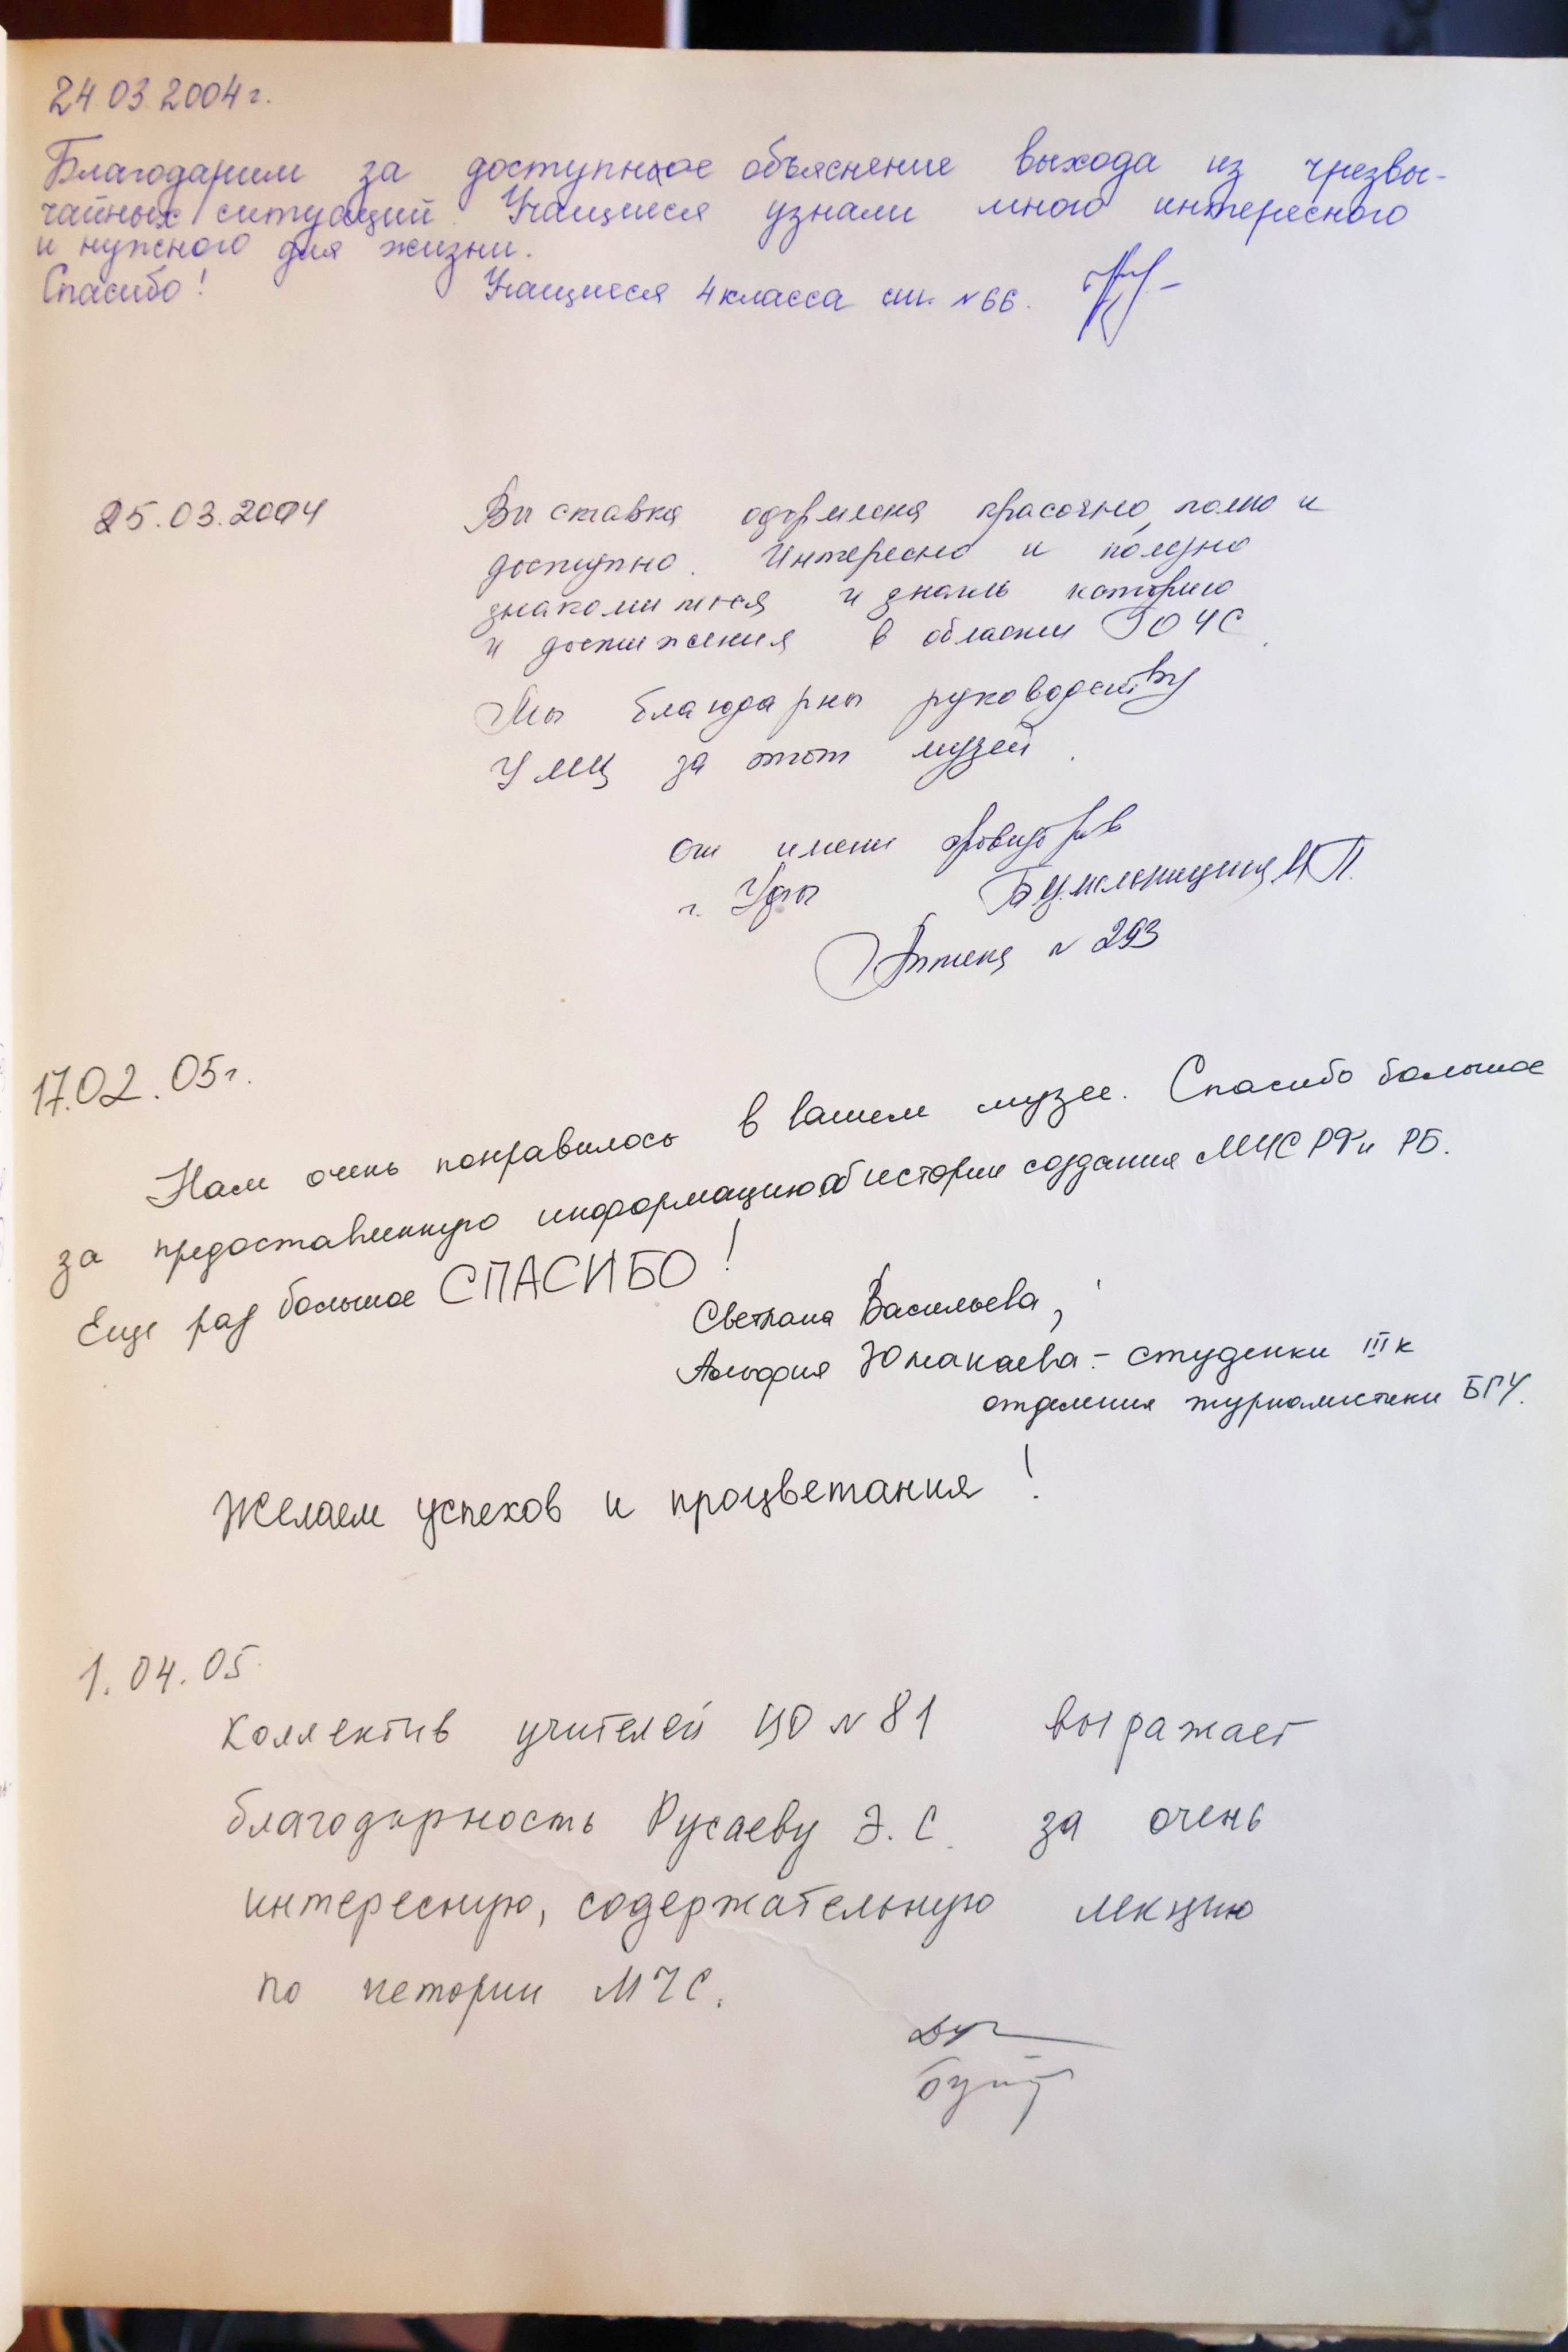 24.03.2004г.
Благодарим за доступное объяснение выхода из чрезвы-
чайных ситуаций. Учащиеся узнали много интересного
и нужного для жизни.
Спасибо! Учащиеся 4 класса шк. №66.
25.03.2004 Выставка оформлена красочно, полно и
доступно. Интересно и полезно
знакомиться и знать историю
и достижения в области ГОЧС.
Мы благодарны руководству
УМЦ за этот музей.
От имени провизоров
г. Уфы И.П.
Аптека №293
17.02.05г.
Нам очень понравилось в вашем музее. Спасибо большое
за предоставленную информацию об истории создания МЧС РФ и РБ.
Еще раз большое СПАСИБО!
Светлана Васильева,
Альфия Юмакаева - студенки III к
отделения журналистики БГУ.
Желаем успехов и процветания!
1.04.05
Коллектив учителей ЦО №81 выражает
благодарность Русаеву Э.С. за очень
интересную, содержательную лекцию
по истории МЧС.